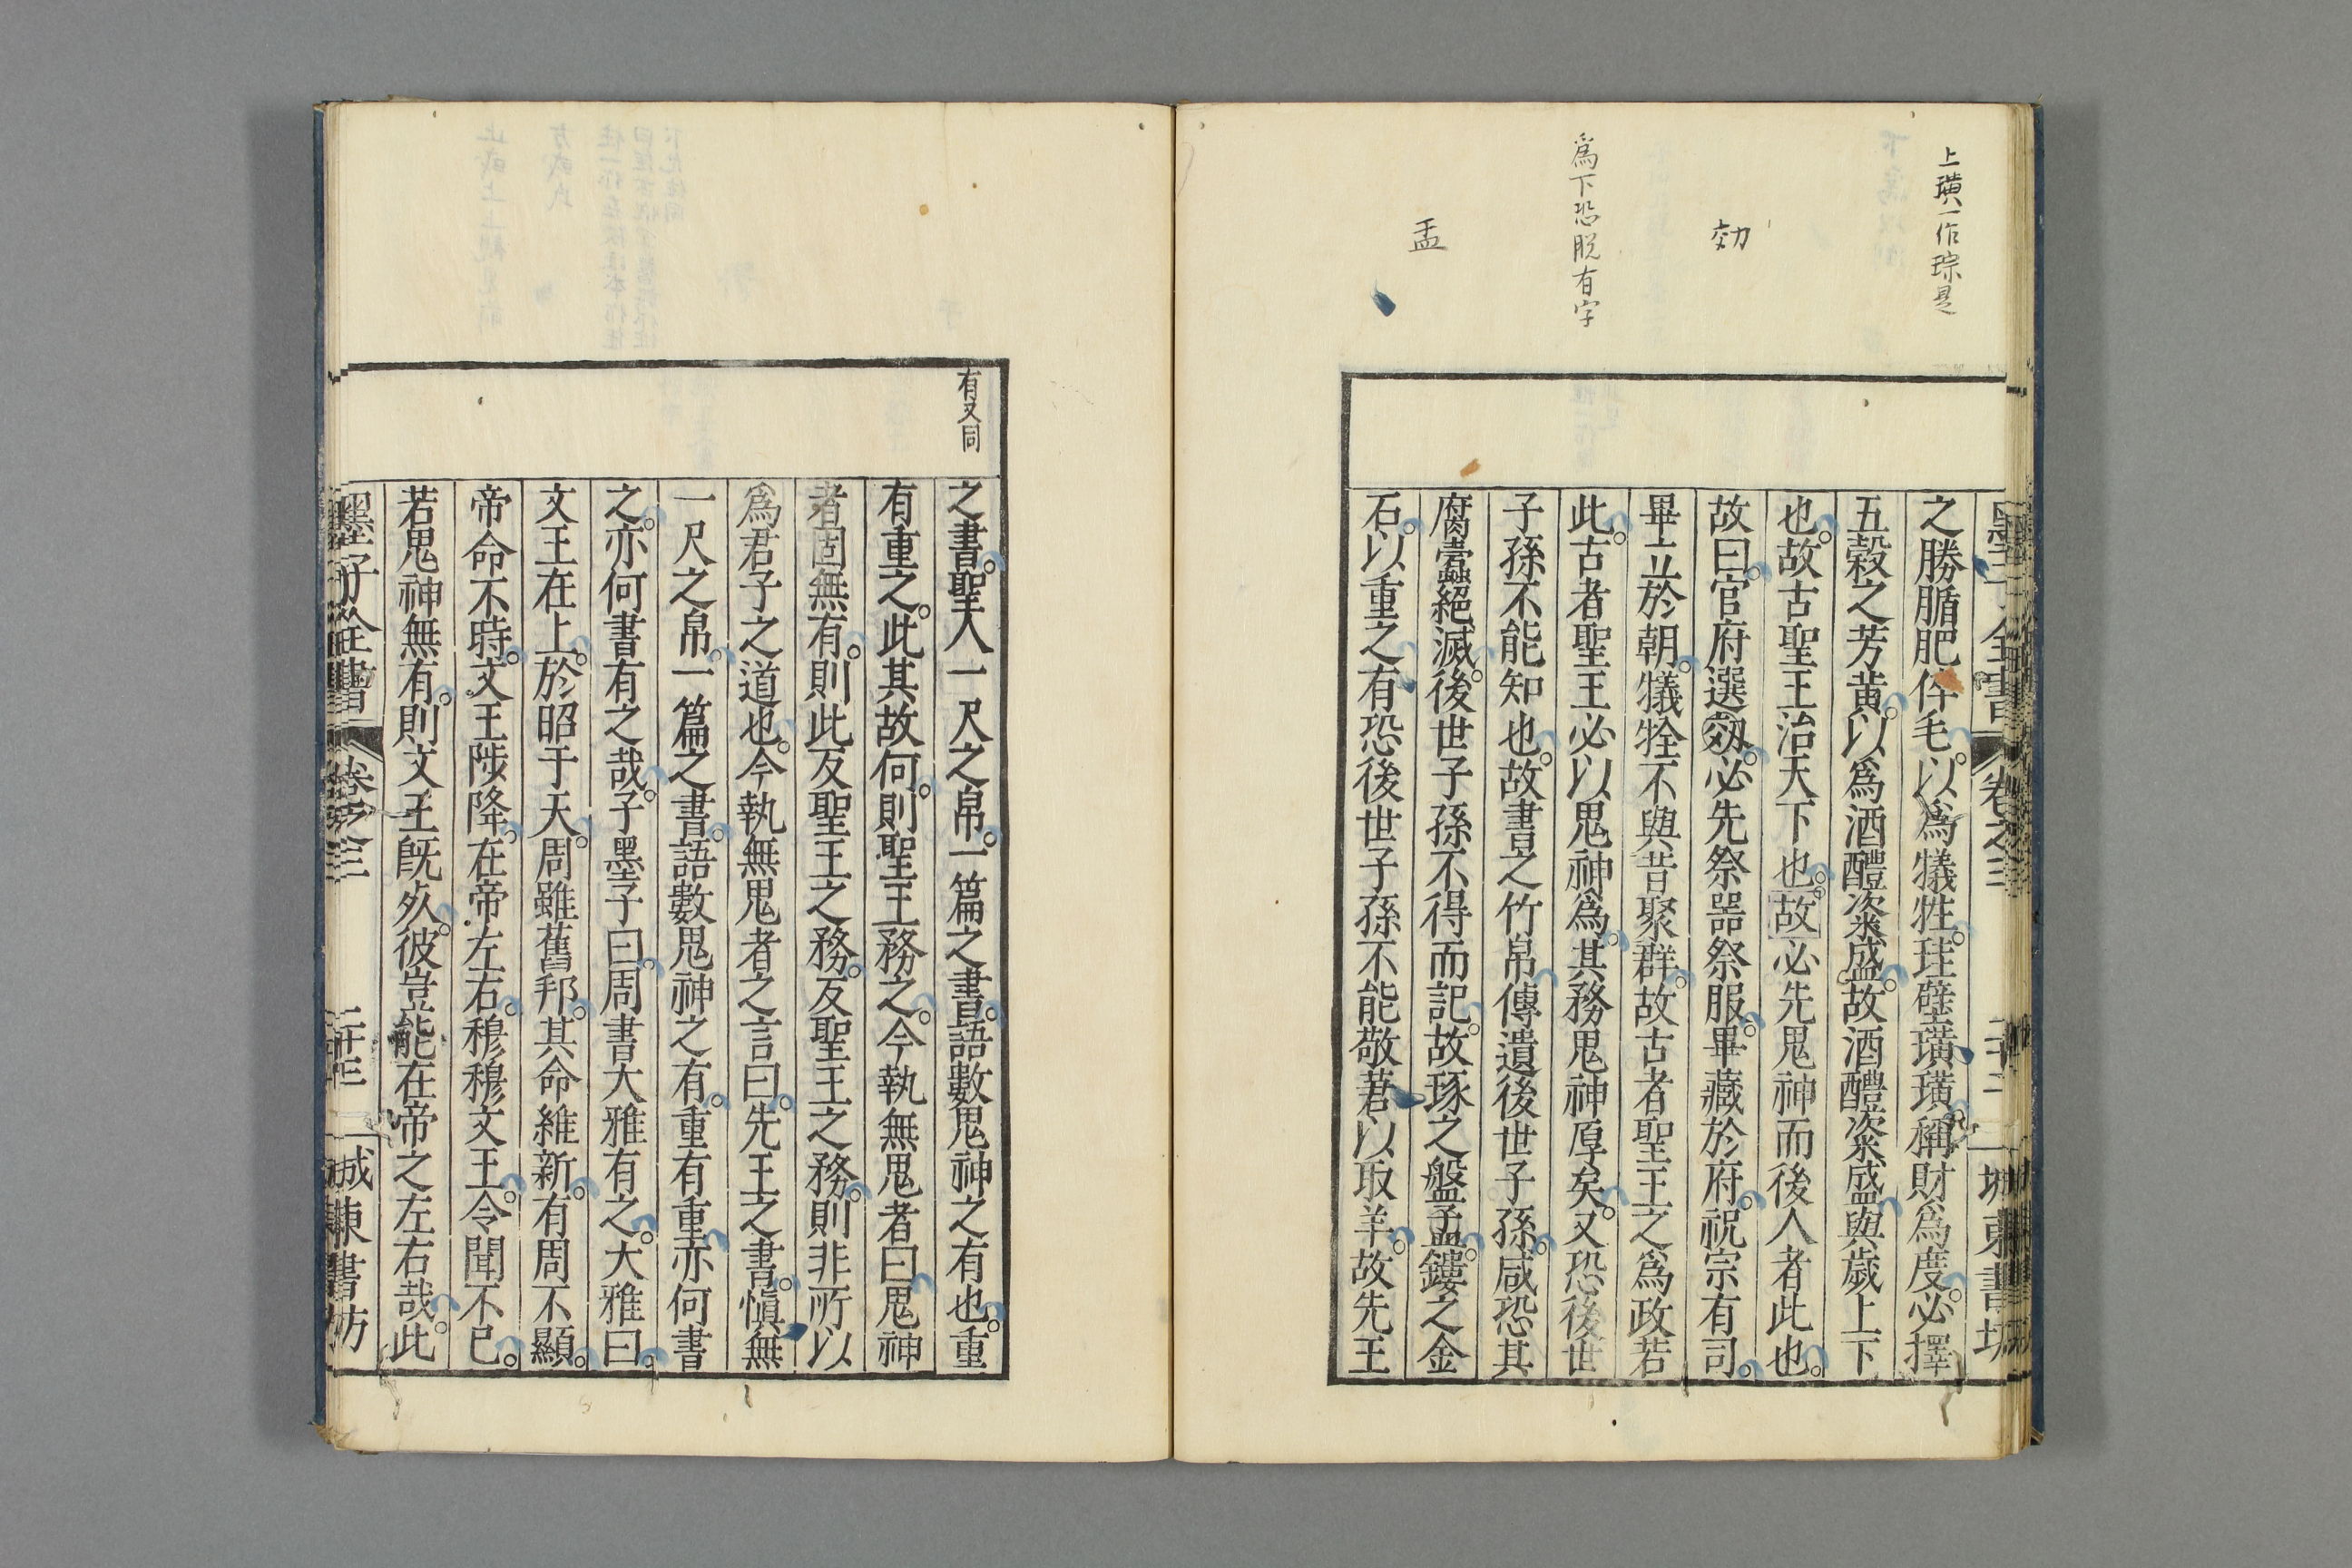 上璜一作琮是
効
爲下恐脱有字
盂
墨子全書 卷之三
之勝腯肥倅毛。以爲犧牲。珪璧璜璜。稱財爲度。必擇
五穀之芳黄。以爲酒醴粢盛。故酒醴粢盛與歲上下
也。故古聖王治天下也。故必先鬼神而後人者此也。
故曰。官府選効。必先祭器祭服。畢藏於府。祝宗有司。
畢立於朝。犧牷不與昔聚群。故古者聖王之爲政若
此。古者聖王必以鬼神爲。其務鬼神厚矣。又恐後世
子孫不能知也。故書之竹帛傳遺後世子孫。咸恐其
腐蠹絕滅。後世子孫不得而記。故琢之盤盂。鏤之金
石。以重之有恐後世子孫不能敬莙以取羊。故先王
有又同
之書。聖人一尺之帛。一篇之書。語數鬼神之有也。重
有重之。此其故何。則聖王務之。今執無鬼者曰。鬼神
者固無有。則此反聖王之務。反聖王之務。則非所以
爲君子之道也。今執無鬼者之言曰。先王之書。愼無
一尺之帛。一篇之書。語數鬼神之有。重有重亦何書
之。亦何書有之哉。子墨子曰。周書大雅有之。大雅曰。
文王在上。於昭于天。周雖舊邦。其命維新。有周不顯。
帝命不時。文王陟降。在帝左右。穆穆文王。令聞不已。
若鬼神無有。則文王旣死。彼豈能在帝之左右哉。此
墨子全書 卷之三 城東書坊